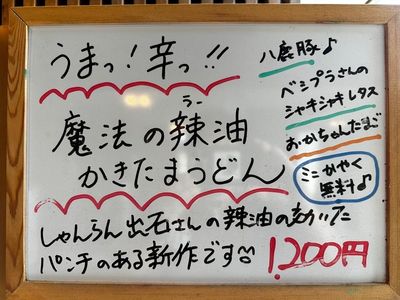 うまっ!辛っ!!
魔法の辣油
ラー
かきたまうどん
八鹿豚♪
ベジプラさんの
シャキシャキレタス
おかちゃんたまご
ミニかやく
無料♪
しゃんらん出石さんの辣油の効いた
パンチのある新作です♡
1,200円